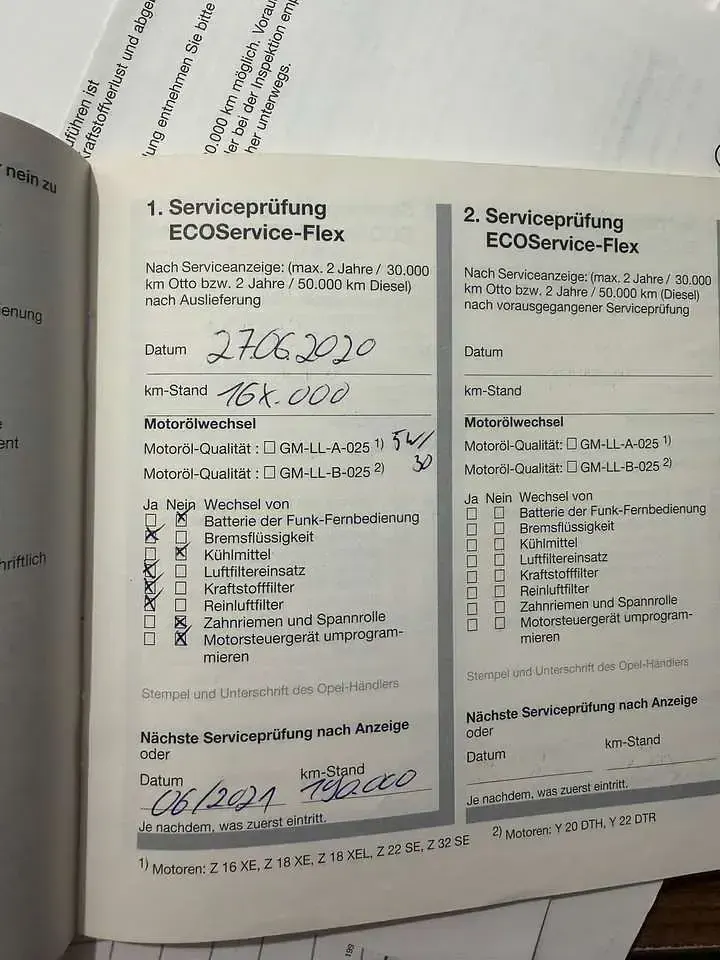 uführen ist
raftstoffverlust und abge
ung entnehmen Sie bitte
0.000 km möglich. Vorau
er bei der Inspektion emp
her unterwegs.
nein zu
enung
ent
hriftlich
1. Serviceprüfung
ECOService-Flex
Nach Serviceanzeige: (max. 2 Jahre / 30.000
km Otto bzw. 2 Jahre / 50.000 km Diesel)
nach Auslieferung
Datum 27.06.2020
km-Stand 16X.000
Motorölwechsel
Motoröl-Qualität : ☐ GM-LL-A-025 1) 5W/
Motoröl-Qualität : ☐ GM-LL-B-025 2) 30
Ja Nein Wechsel von
☐ ☒ Batterie der Funk-Fernbedienung
☒ ☐ Bremsflüssigkeit
☐ ☒ Kühlmittel
☒ ☐ Luftfiltereinsatz
☒ ☐ Kraftstofffilter
☒ ☐ Reinluftfilter
☐ ☒ Zahnriemen und Spannrolle
☐ ☒ Motorsteuergerät umprogram-
mieren
Stempel und Unterschrift des Opel-Händlers
Nächste Serviceprüfung nach Anzeige
oder
Datum km-Stand
06/2021 190.000
Je nachdem, was zuerst eintritt.
1) Motoren: Z 16 XE, Z 18 XE, Z 18 XEL, Z 22 SE, Z 32 SE
2. Serviceprüfung
ECOService-Flex
Nach Serviceanzeige: (max. 2 Jahre / 30.000
km Otto bzw. 2 Jahre / 50.000 km (Diesel)
nach vorausgegangener Serviceprüfung
Datum
km-Stand
Motorölwechsel
Motoröl-Qualität: ☐ GM-LL-A-025 1)
Motoröl-Qualität: ☐ GM-LL-B-025 2)
Ja Nein Wechsel von
☐ ☐ Batterie der Funk-Fernbedienung
☐ ☐ Bremsflüssigkeit
☐ ☐ Kühlmittel
☐ ☐ Luftfiltereinsatz
☐ ☐ Kraftstofffilter
☐ ☐ Reinluftfilter
☐ ☐ Zahnriemen und Spannrolle
☐ ☐ Motorsteuergerät umprogram-
mieren
Stempel und Unterschrift des Opel-Händlers
Nächste Serviceprüfung nach Anzeige
oder
Datum km-Stand
Je nachdem, was zuerst eintritt.
2) Motoren: Y 20 DTH, Y 22 DTR
199